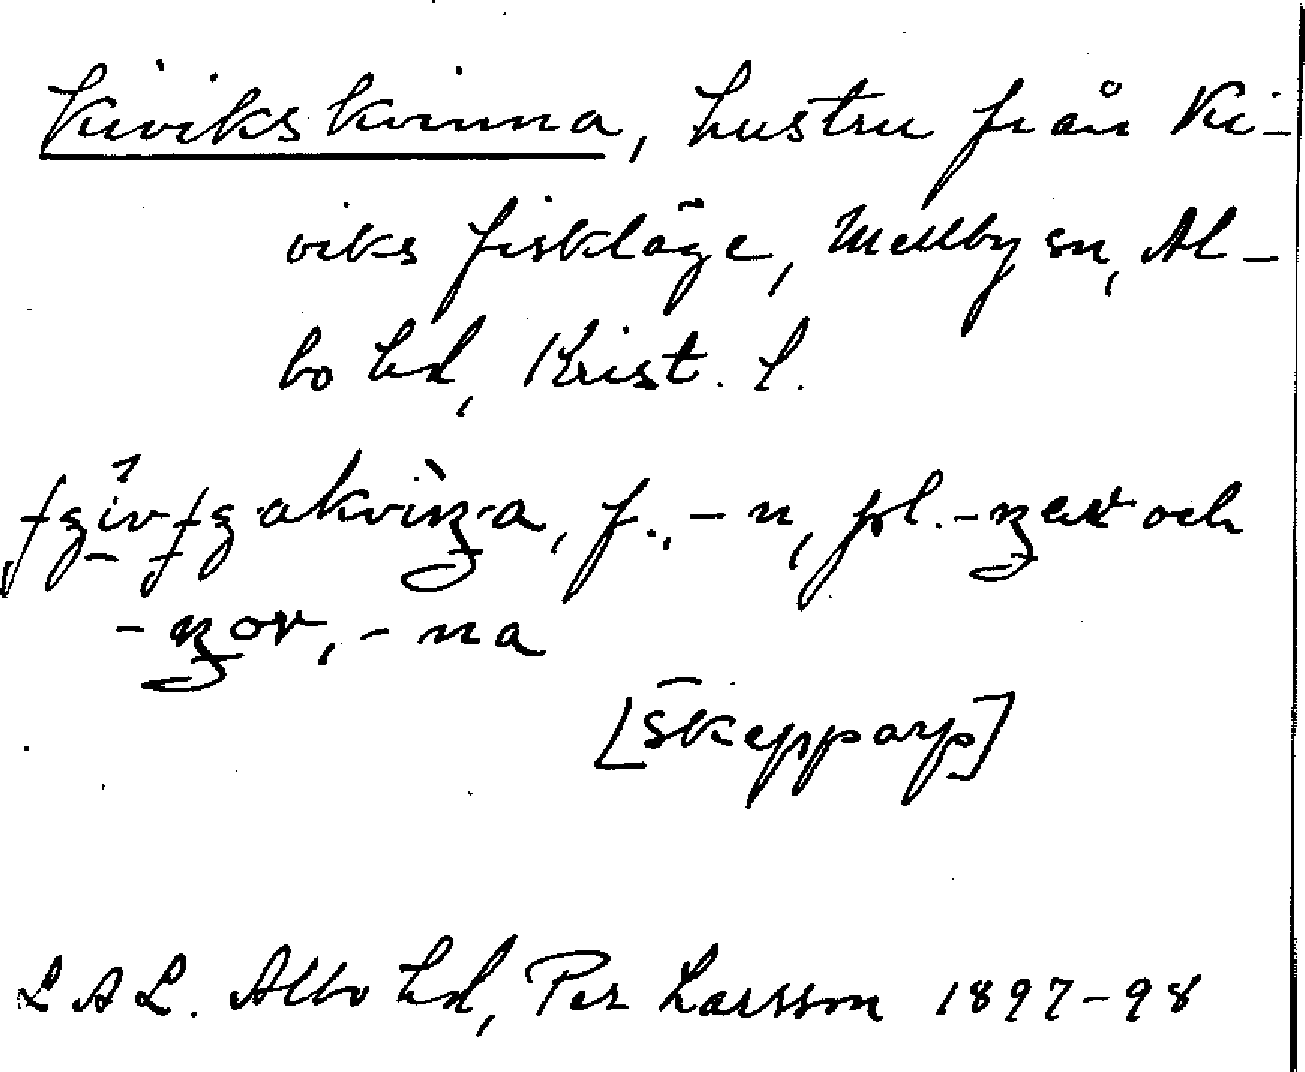 Kivikskvinna, hustru från Ki-
viks fiskläge, Mellby sn, Al-
bo hd, Krist. l.
f., -n, pl. och
-na
[Skepparp]
LAL. Albo hd, Per Larsson 1897-98